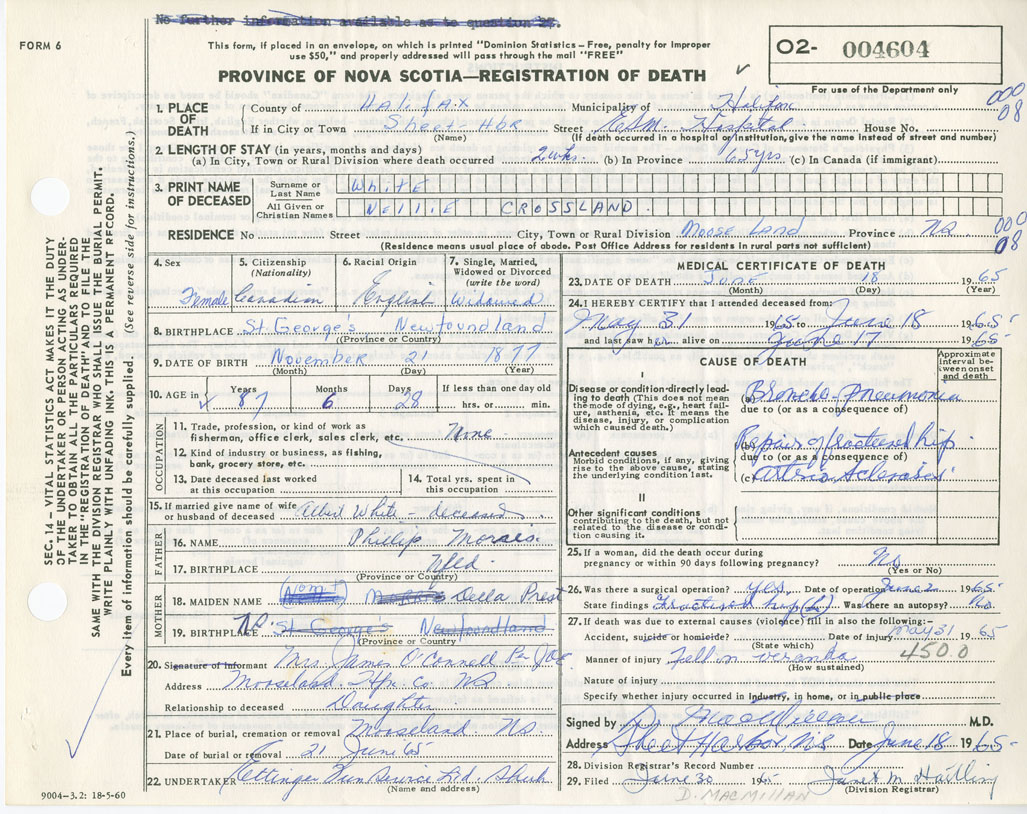 No further information available as to question 25.
FORM 6
This form, if placed in an envelope, on which is printed "Dominion Statistics – Free, penalty for improper
use $50," and properly addressed will pass through the mail "FREE"
O2- 004604
PROVINCE OF NOVA SCOTIA—REGISTRATION OF DEATH
For use of the Department only
000
08
1. PLACE OF DEATH
County of Halifax Municipality of Halifax
If in City or Town Sheet Hbr Street E.S.M. Hospital House No.
(Name) (If death occurred in a hospital or institution, give the name instead of street and number)
2. LENGTH OF STAY (in years, months and days)
(a) In City, Town or Rural Division where death occurred 2 wks. (b) In Province 65 yrs (c) In Canada (if immigrant)
3. PRINT NAME OF DECEASED
Surname or Last Name White
All Given or Christian Names Nellie CROSSLAND.
RESIDENCE No Street City, Town or Rural Division Moose Land Province N.S.
000
08
(Residence means usual place of abode. Post Office Address for residents in rural parts not sufficient)
4. Sex Female
5. Citizenship (Nationality) Canadian
6. Racial Origin English
7. Single, Married, Widowed or Divorced (write the word) Widowed
8. BIRTHPLACE St. George's Newfoundland
(Province or Country)
9. DATE OF BIRTH November 21 1877
(Month) (Day) (Year)
10. AGE in Years 87 Months 6 Days 28 If less than one day old hrs. or min.
OCCUPATION
11. Trade, profession, or kind of work as
fisherman, office clerk, sales clerk, etc. None
12. Kind of industry or business, as fishing,
bank, grocery store, etc.
13. Date deceased last worked at this occupation
14. Total yrs. spent in this occupation
15. If married give name of wife
or husband of deceased Albert White – deceased
FATHER
16. NAME Phillip Morais
17. BIRTHPLACE Nfld.
(Province or Country)
MOTHER
18. MAIDEN NAME Della
19. BIRTHPLACE St George's Newfoundland
(Province or Country)
20. Signature of Informant Mrs. James O'Connell
Address Mooseland Hfx. Co. NS
Relationship to deceased Daughter
21. Place of burial, cremation or removal Mooseland N.S.
Date of burial or removal 21 June 65
22. UNDERTAKER Ettinger Fun Service Ltd
(Name and address)
9004-3.2: 18-5-60
MEDICAL CERTIFICATE OF DEATH
23. DATE OF DEATH June 18 1965
(Month) (Day) (Year)
24. I HEREBY CERTIFY that I attended deceased from:
May 31 1965 to June 18 1965
and last saw her alive on June 17 1965
CAUSE OF DEATH
Approximate Interval between onset and death
I
Disease or condition-directly leading to death (This does not mean the mode of dying, e.g., heart failure, asthenia, etc. It means the disease, injury, or complication which caused death.)
(a) Broncho-Pneumonia
due to (or as a consequence of)
Antecedent causes
Morbid conditions, if any, giving rise to the above cause, stating the underlying condition last.
(b) Repair of fractured hip.
due to (or as a consequence of)
(c) Arterio Sclerosis
II
Other significant conditions
contributing to the death, but not related to the disease or condition causing it.
25. If a woman, did the death occur during
pregnancy or within 90 days following pregnancy? No
(Yes or No)
26. Was there a surgical operation? yes. Date of operation June 2 1965
State findings fractured hip (L) Was there an autopsy? No.
27. If death was due to external causes (violence) fill in also the following:–
Accident, suicide or homicide? Date of injury May 31 1965
(State which)
4500
Manner of injury Fell on veranha
(How sustained)
Nature of injury
Specify whether injury occurred in industry, in home, or in public place
Signed by M.D.
Address Sheet Harbor N.S Date June 18 1965
28. Division Registrar's Record Number
29. Filed June 30 1965 Janet M
(Division Registrar)
D. MACMILLAN
SEC. 14 – VITAL STATISTICS ACT MAKES IT THE DUTY
OF THE UNDERTAKER OR PERSON ACTING AS UNDER-
TAKER TO OBTAIN ALL THE PARTICULARS REQUIRED
IN THE "REGISTRATION OF DEATH" AND TO FILE THE
SAME WITH THE DIVISION REGISTRAR WHO SHALL ISSUE THE BURIAL PERMIT.
WRITE PLAINLY WITH UNFADING INK. THIS IS A PERMANENT RECORD.
Every item of information should be carefully supplied. (See reverse side for instructions.)